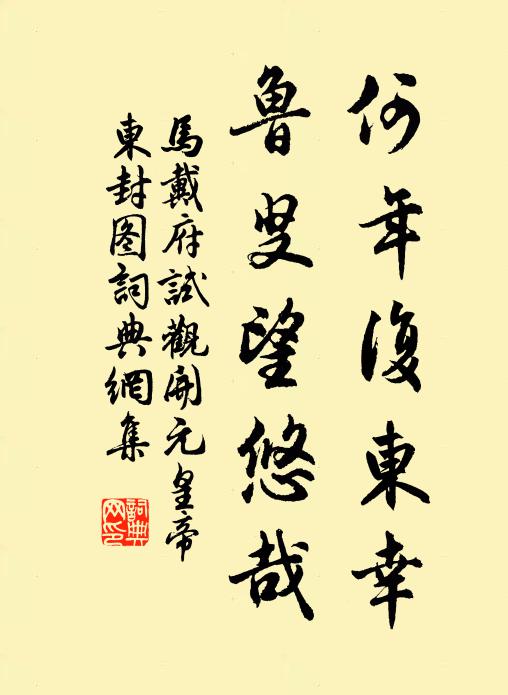 何年復東幸
魯叟望悠哉
馬戴府試觀開元皇帝
東封图詞典網集
詞典
网印